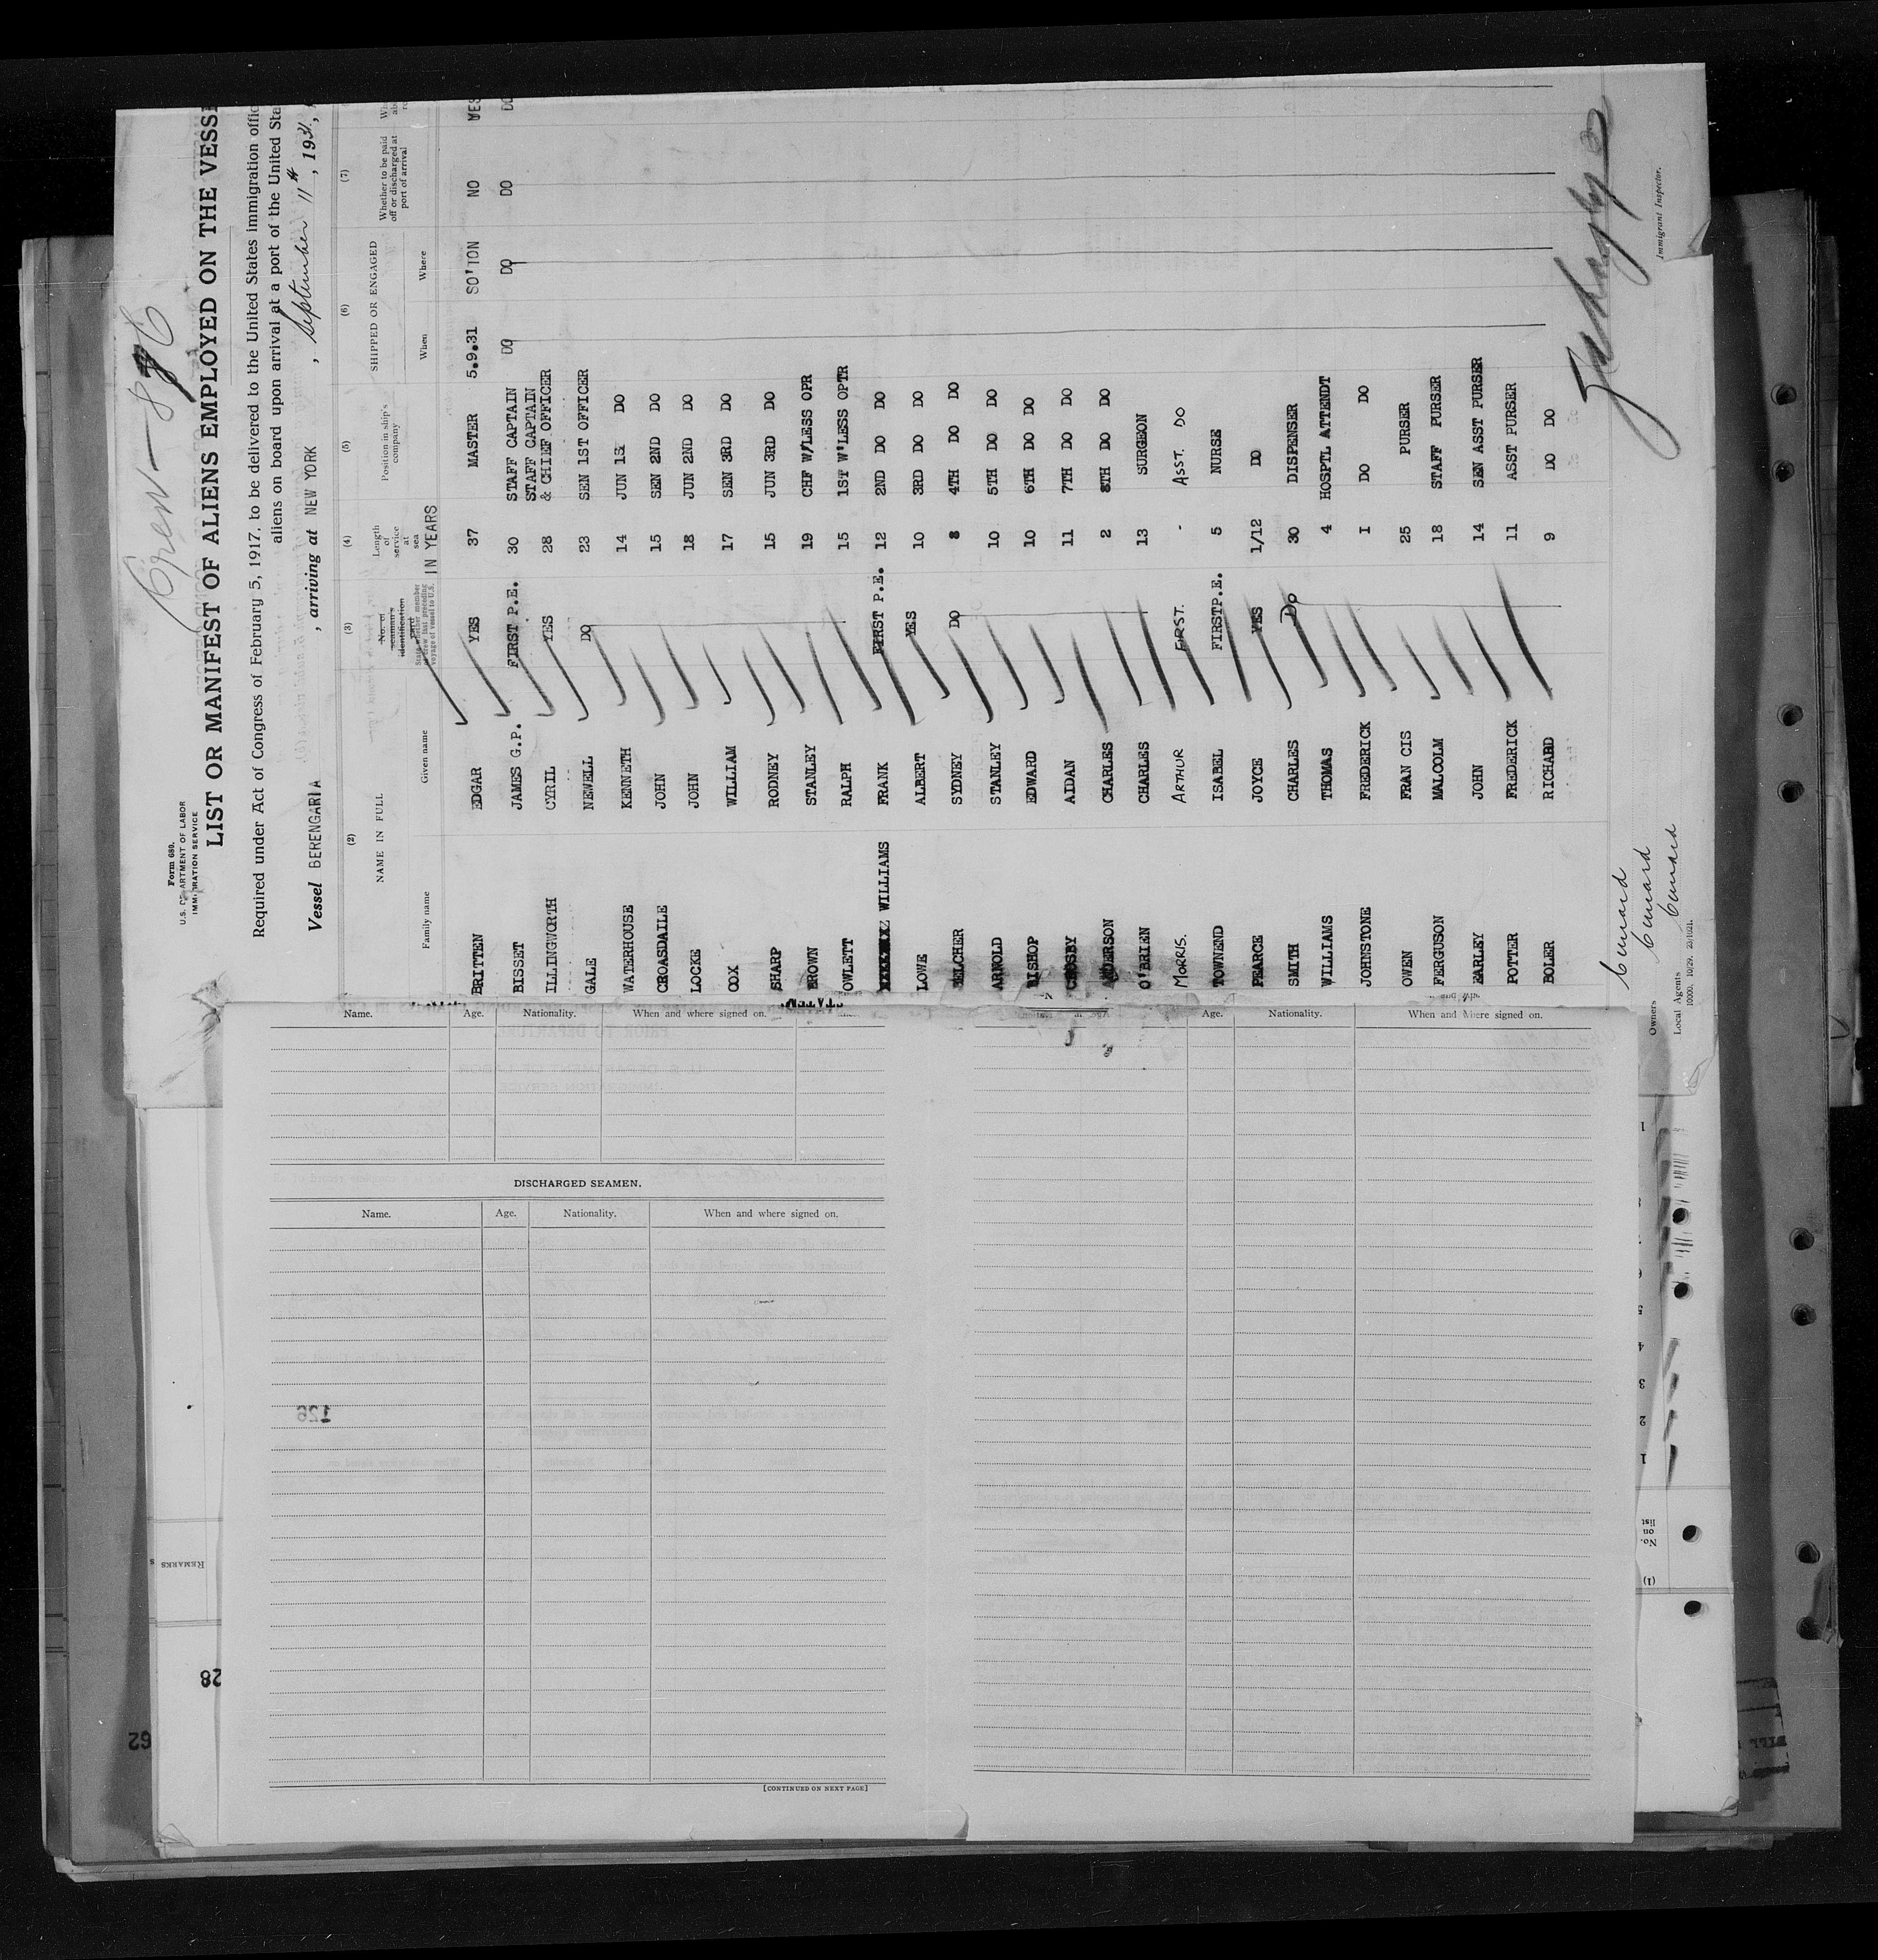 Crew
Form 680.
U.S. DEPARTMENT OF LABOR
IMMIGRATION SERVICE
LIST OR MANIFEST OF ALIENS EMPLOYED ON THE VESSE
Required under Act of Congress of February 5, 1917, to be delivered to the United States immigration offic
aliens on board upon arrival at a port of the United Sta
Vessel BERENGARIA , arriving at NEW YORK , September 11th, 1931,
(2) (3) (4) (5) (6) (7)
NAME IN FULL
Family name Given name
No. of seaman's identification card
State whether member of crew last preceding voyage of vessel to U.S.
Length of service at sea
IN YEARS
Position in ship's company
SHIPPED OR ENGAGED
When Where
Whether to be paid off or discharged at port of arrival
BRITTEN EDGAR YES 37 MASTER 5.9.31 SO'TON NO YES
BISSET JAMES G.P. FIRST P.E. 30 STAFF CAPTAIN DO DO DO DO
STAFF CAPTAIN
ILLINGWORTH CYRIL YES 28 & CHIEF OFFICER
GALE NEWELL DO 23 SEN 1ST OFFICER
WATERHOUSE KENNETH 14 JUN 1ST DO
CROASDAILE JOHN 15 SEN 2ND DO
LOCKE JOHN 18 JUN 2ND DO
COX WILLIAM 17 SEN 3RD DO
SHARP RODNEY 15 JUN 3RD DO
BROWN STANLEY 19 CHF W/LESS OPR
OWLETT RALPH 15 1ST W'LESS OPTR
WILLIAMS FRANK FIRST P.E. 12 2ND DO DO
LOWE ALBERT YES 10 3RD DO DO
BELCHER SYDNEY DO 8 4TH DO DO
ARNOLD STANLEY 10 5TH DO DO
BISHOP EDWARD 10 6TH DO DO
CROSBY AIDAN 11 7TH DO DO
ANDERSON CHARLES 2 8TH DO DO
O'BRIEN CHARLES 13 SURGEON
MORRIS. ARTHUR FIRST. - ASST. DO
TOWNEND ISABEL FIRST P.E. 5 NURSE
PEARCE JOYCE YES 1/12 DO
SMITH CHARLES DO 30 DISPENSER
WILLIAMS THOMAS 4 HOSPTL ATTENDT
JOHNSTONE FREDERICK I DO DO
OWEN FRAN CIS 25 PURSER
FERGUSON MALCOLM 18 STAFF PURSER
EARLEY JOHN 14 SEN ASST PURSER
POTTER FREDERICK 11 ASST PURSER
BOLER RICHARD 9 DO DO
Cunard
Owners Cunard
Local Agents Cunard
Immigrant Inspector.
Name. Age. Nationality. When and where signed on.
DISCHARGED SEAMEN.
Name. Age. Nationality. When and where signed on.
[CONTINUED ON NEXT PAGE]
Age. Nationality. When and where signed on.
126
REMARKS
28
62
(1)
No. on list
1
2
3
4
5
6